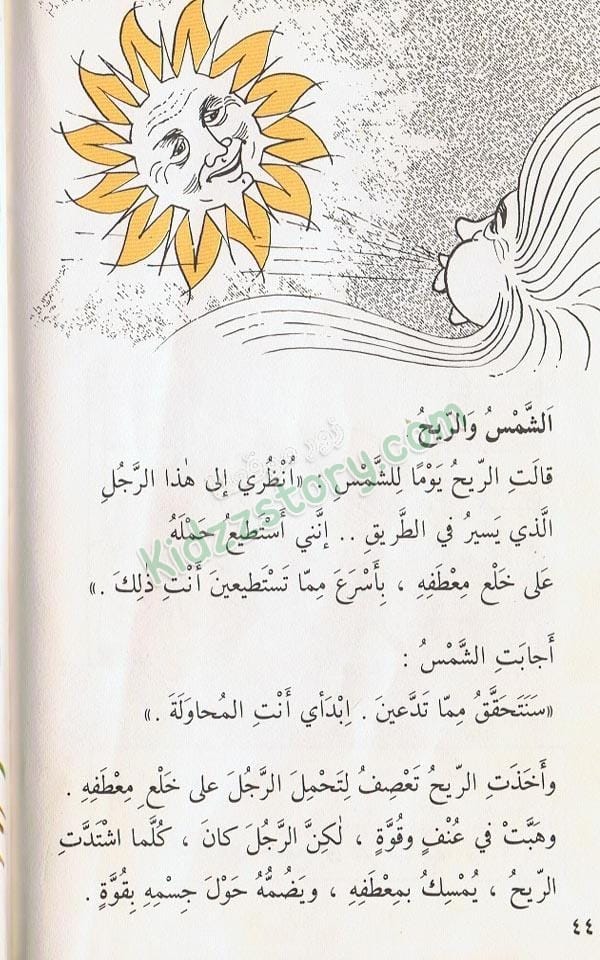 اَلشَّمْسُ وَالرّيحُ
قالَتِ الرّيحُ يَوْمًا لِلشَّمْسِ : «اُنْظُري إلى هٰذا الرَّجُلِ
الَّذي يَسيرُ في الطَّريقِ .. إنَّني أَسْتَطيعُ حَمْلَهُ
عَلى خَلْعِ مِعْطَفِهِ ، بِأَسْرَعَ مِمّا تَسْتَطيعينَ أَنْتِ ذٰلِكَ .»
أَجابَتِ الشَّمْسُ :
«سَنَتَحَقَّقُ مِمّا تَدَّعينَ . اِبْدَأي أَنْتِ المُحاوَلَةَ .»
وأَخَذَتِ الرّيحُ تَعْصِفُ لِتَحْمِلَ الرَّجُلَ على خَلْعِ مِعْطَفِهِ .
وهَبَّتْ في عُنْفٍ وقُوَّةٍ ، لٰكِنَّ الرَّجُلَ كانَ ، كُلَّما اشْتَدَّتِ
الرّيحُ ، يُمْسِكُ بمِعْطَفِهِ ، ويَضُمُّهُ حَوْلَ جِسْمِهِ بِقُوَّةٍ .
٤٤
Kidzzstory.com